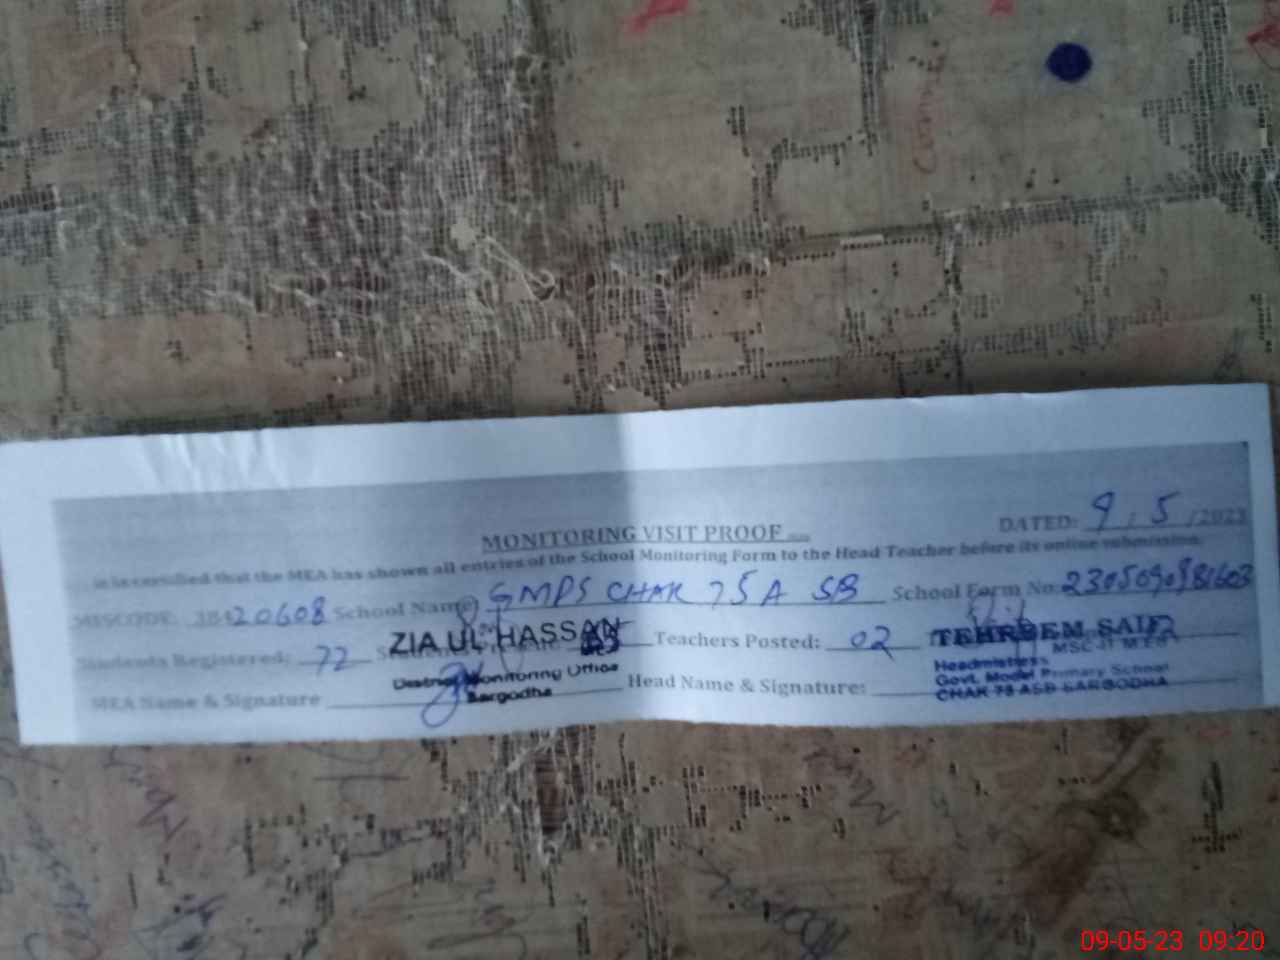 MONITORING VISIT PROOF
DATED: 9 / 5 /2023
it is certified that the MEA has shown all entries of the School Monitoring Form to the Head Teacher before its online submission.
MISCODE: 38420608 School Name GMPS CHAK 75 A SB School Form No.
Students Registered: 72 Teachers Posted: 02
ZIA UL HASSAN
District Monitoring Office
Sargodha
MEA Name & Signature
Head Name & Signature:
TEHREEM SAIF
Headmistress
Govt. Model Primary School
CHAK 75 ASB SARGODHA
09-05-23 09:20